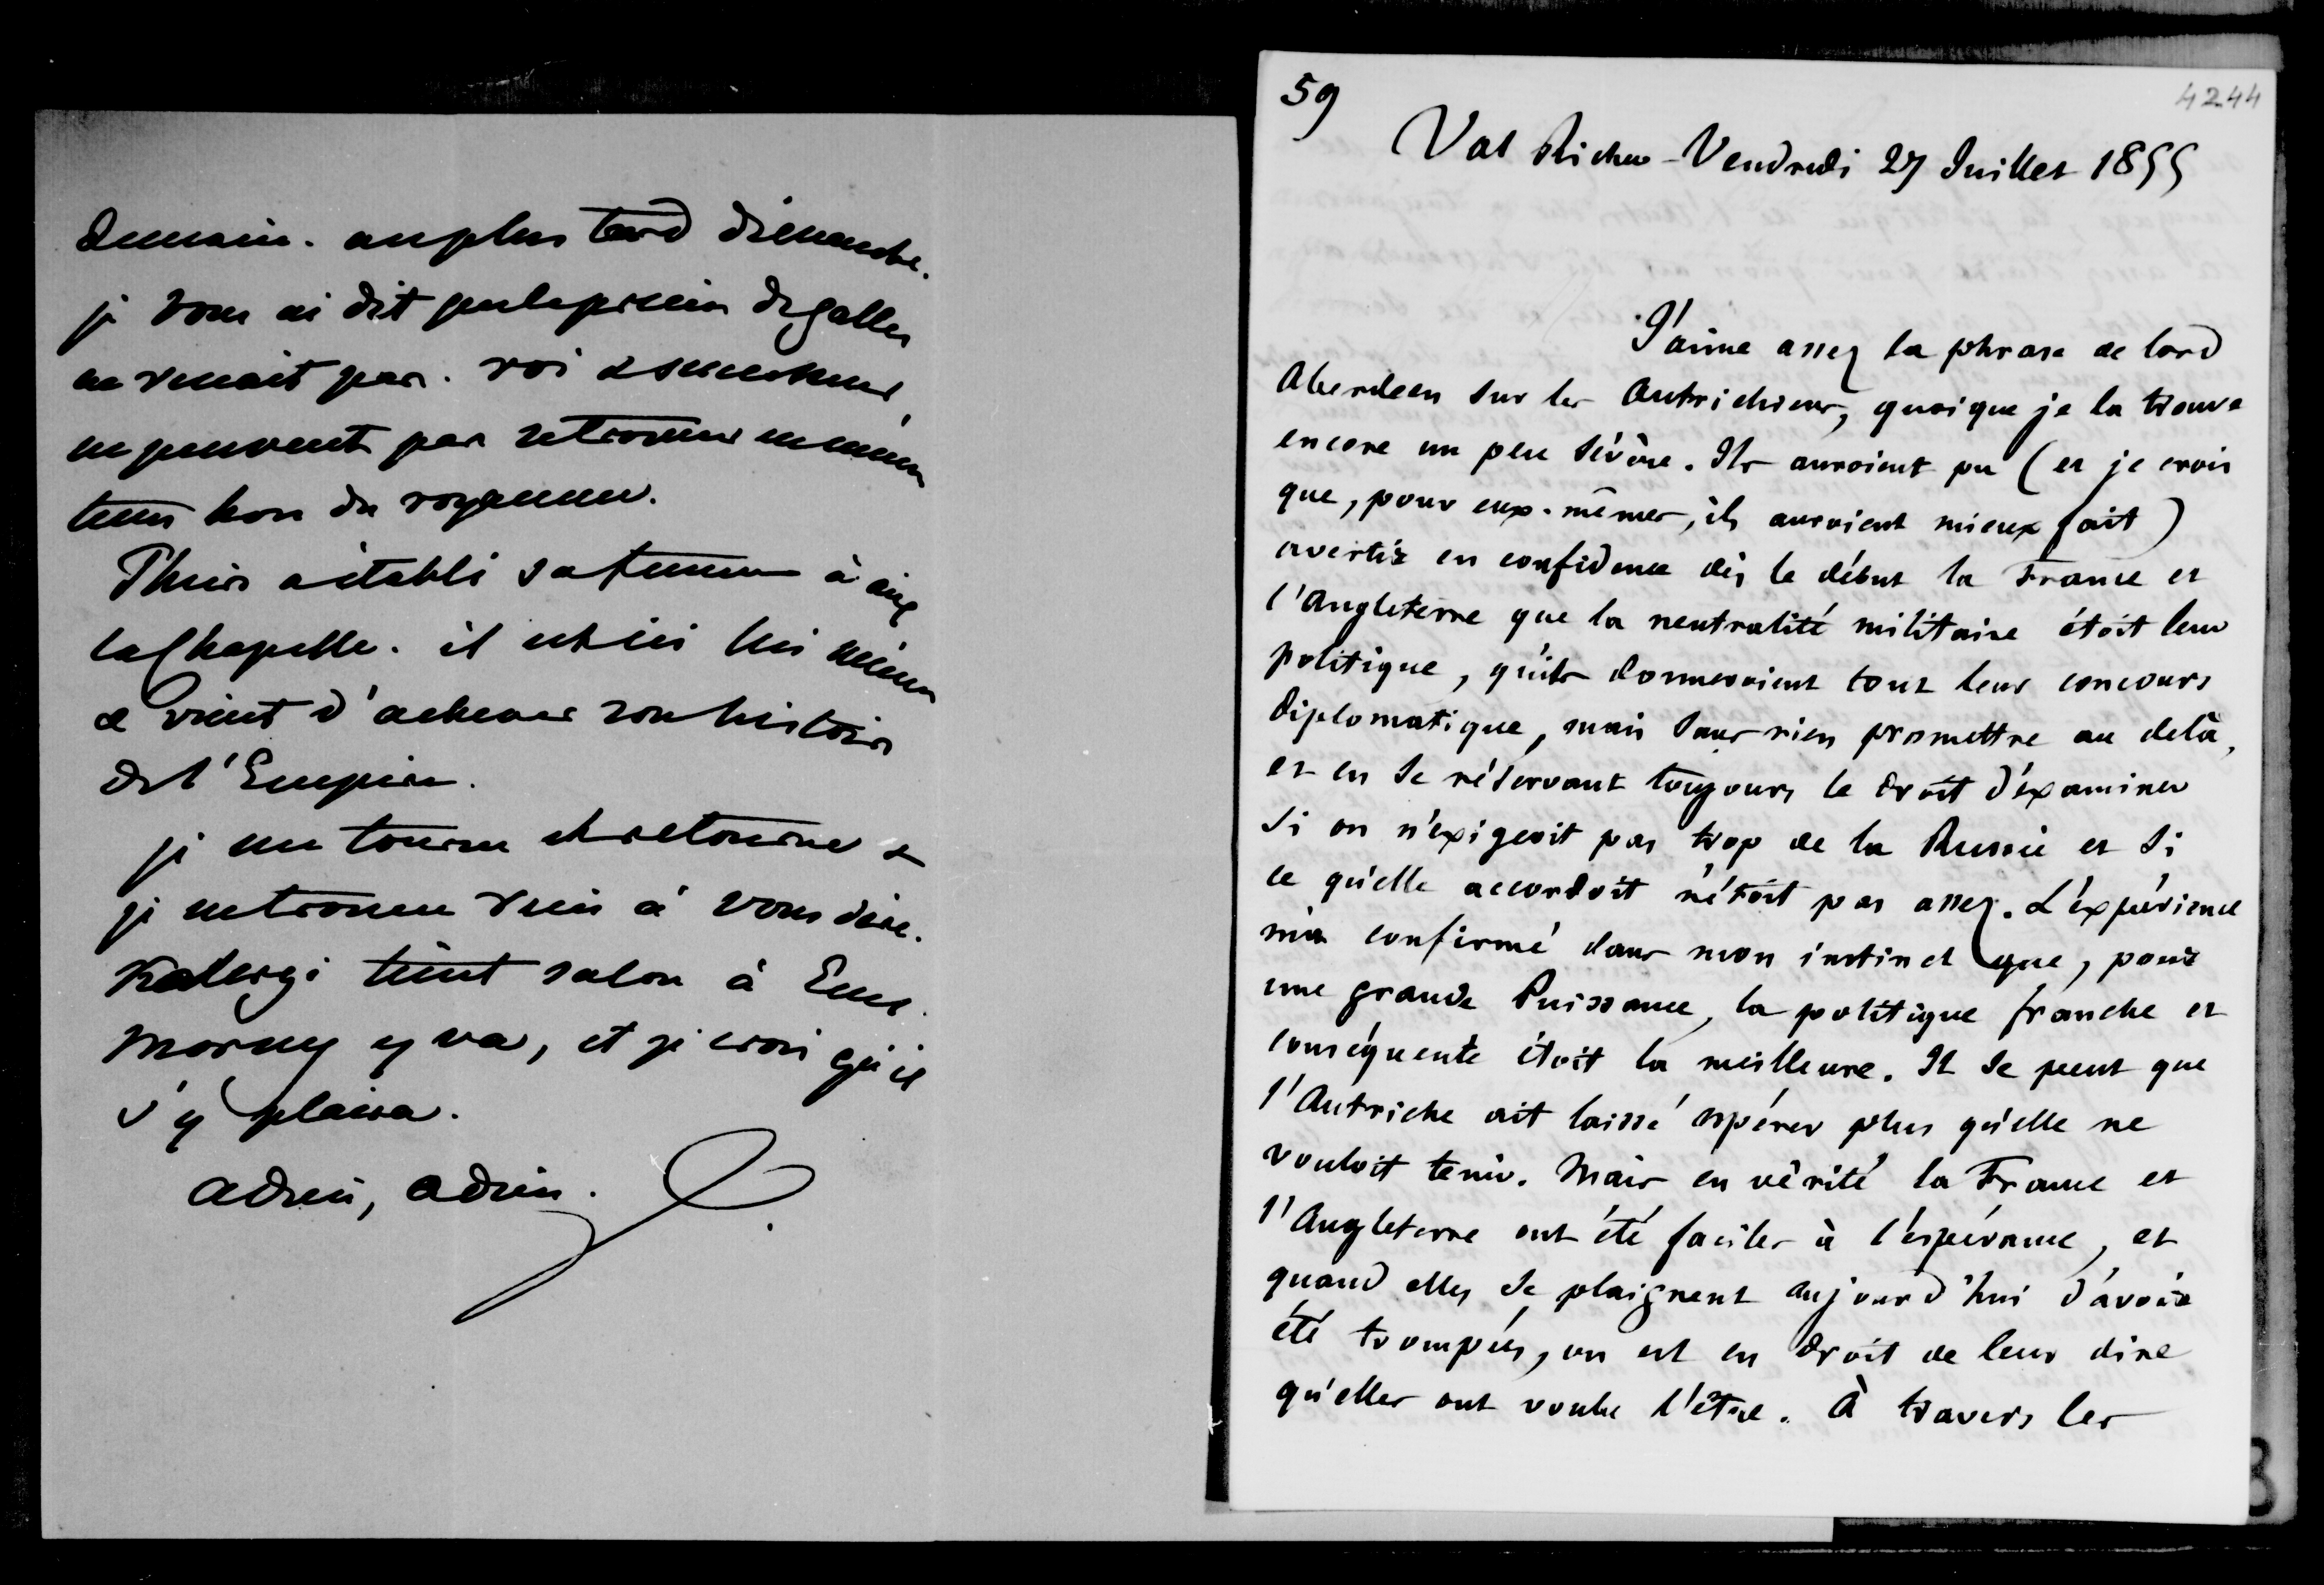 demain. au plus tard dimanche.
je vous ai dit que le prince de galles
ne venait pas. roi & successeur
ne peuvent pas se trouver en même
tems hors du royaume.
Thiers a établi sa femme à aix
la Chapelle. il est ici lui même
& vient d'achever son histoire
de l'Empire.
je me tourne et retourne &
je ne trouve rien à vous dire.
Kalergi tient salon à Ems.
Morny y va, et je crois qu'il
s'y plaira.
adieu, adieu.
59
4244
Val Richer - Vendredi 27 Juillet 1855
J'aime assez la phrase de lord
Aberdeen sur les Autrichiens, quoique je la trouve
encore un peu sévère. Ils auroient pu (et je crois
que, pour eux-mêmes, ils auroient mieux fait)
avertir en confidence dès le début la France et
l'Angleterre que la neutralité militaire étoit leur
politique, qu'ils donneroient tout leur concours
diplomatique, mais sans rien promettre au delà,
et en se réservant toujours le droit d'éxaminer
si on n'exigeoit pas trop de la Russie et si
ce qu'elle accordoit n'étoit pas assez. L'expérience
m'a confirmé dans mon instinct que, pour
une grande Puissance, la politique franche et
conséquente étoit la meilleure. Il se peut que
l'Autriche ait laissé espérer plus qu'elle ne
vouloit tenir. Mais en vérité la France et
l'Angleterre ont été faciles à l'espérance, et
quand elles se plaignent aujourd'hui d'avoir
été trompées, on est en droit de leur dire
qu'elles ont voulu l'être. À travers les